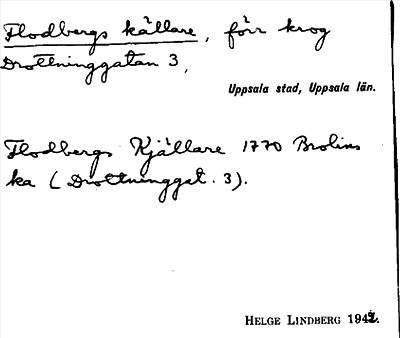 Flodbergs källare, förr krog
Drottninggatan 3,
Uppsala stad, Uppsala län.
Flodbergs Kjällare 1770 Brolins
ka (Drottninggat. 3).
HELGE LINDBERG 1942.